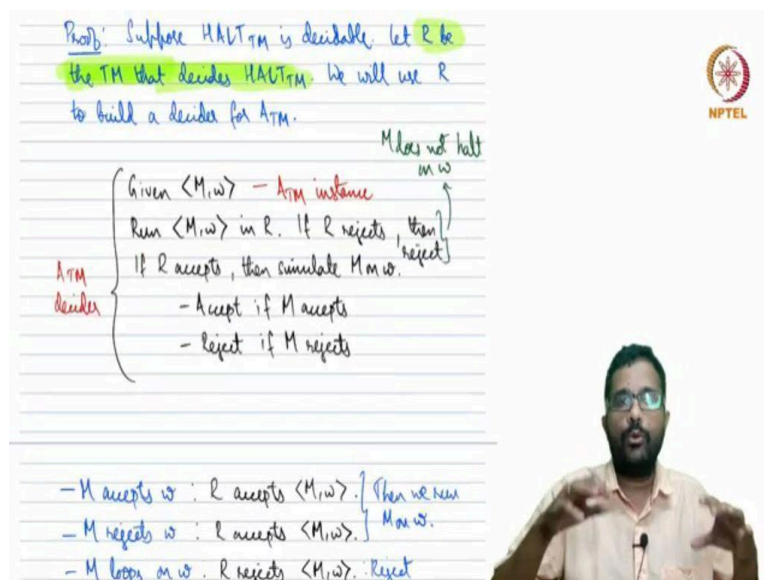 Proof: Suppose HALT_TM is decidable. Let R be
the TM that decides HALT_TM. We will use R
to build a decider for A_TM.
M does not halt
on w
Given <M,w> — A_TM instance
Run <M,w> in R. If R rejects, then
reject
If R accepts, then simulate M on w.
A_TM
decider
- Accept if M accepts
- Reject if M rejects
- M accepts w : R accepts <M,w>. Then we run
- M rejects w : R accepts <M,w>. M on w.
- M loops on w. R rejects <M,w> : Reject
NPTEL